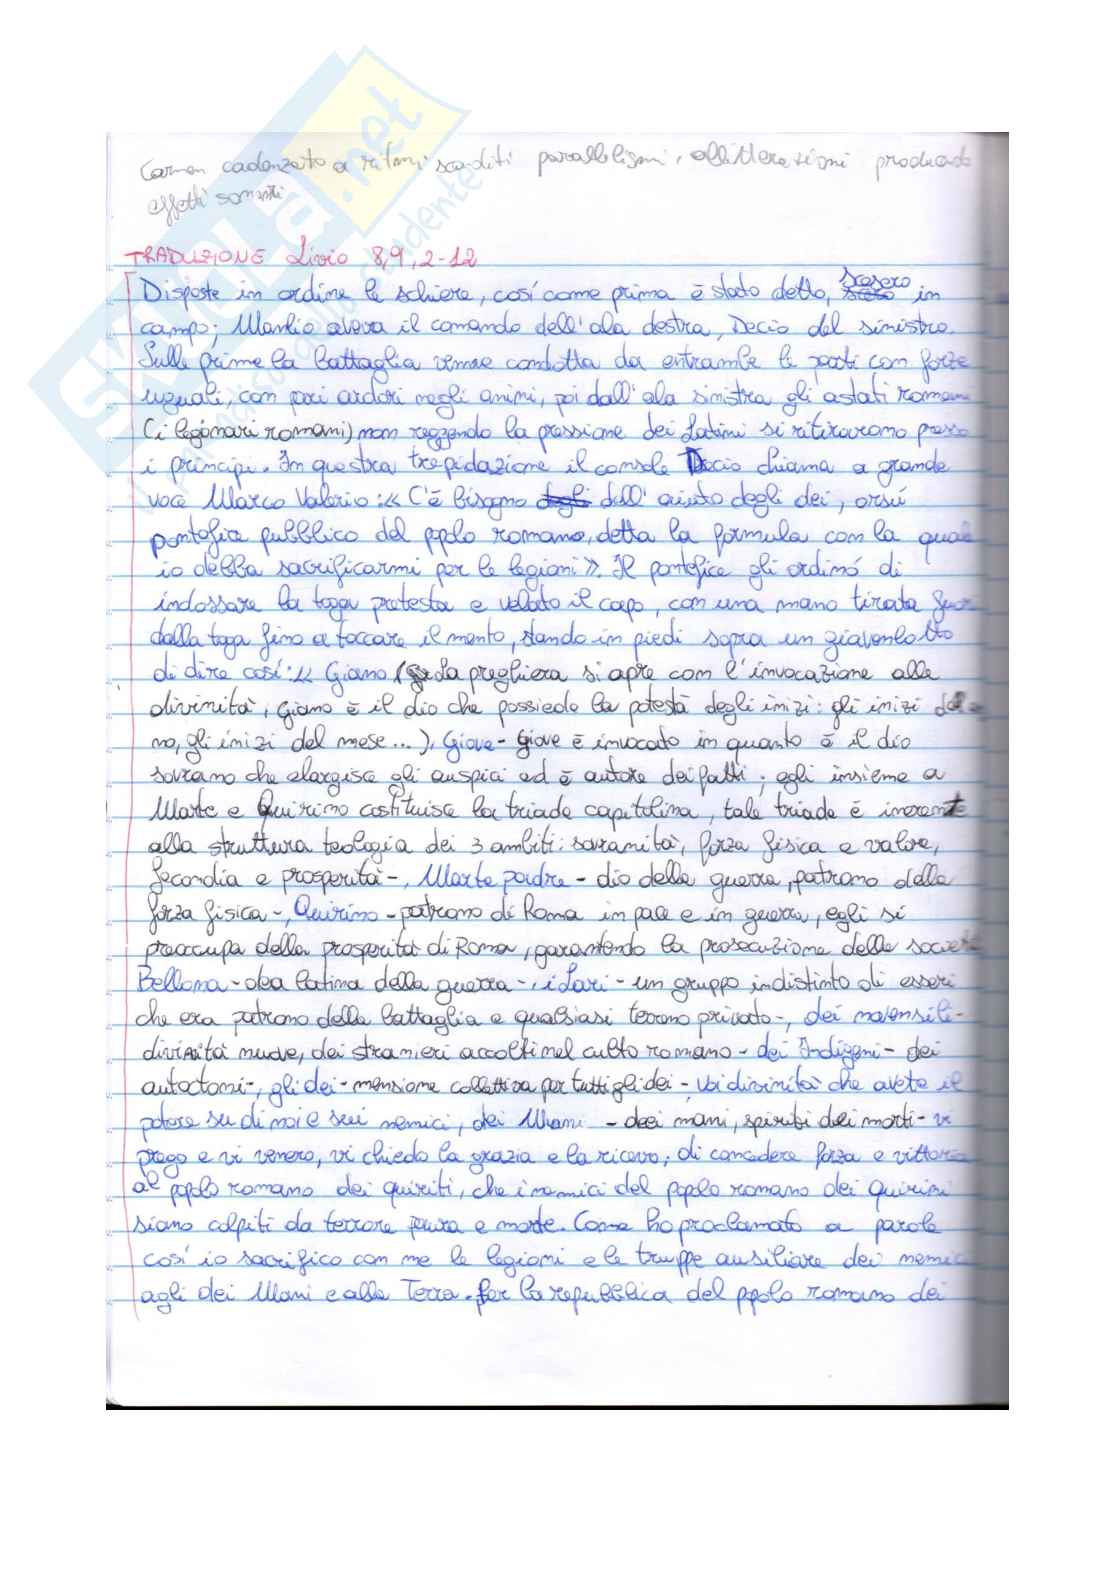 Carmen cadenzato a ritmi scanditi parallelismi, allitterazioni producendo
effetti sonori
TRADUZIONE Livio 8,9,2-12
Disposte in ordine le schiere, così come prima è stato detto, scesero in
campo; Manlio aveva il comando dell'ala destra, Decio del sinistro.
Sulle prime la battaglia venne condotta da entrambe le parti con forze
uguali, con pari ardori negli animi, poi dall'ala sinistra gli astati romani
(i legionari romani) non reggendo la pressione dei Latini si ritirarono presso
i principi. In questra trepidazione il console Decio chiama a grande
voce Marco Valerio: «C'è bisogno degli dell'aiuto degli dei, orsú
pontefice pubblico del popolo romano, detta la formula con la quale
io debba sacrificarmi per le legioni». Il pontefice gli ordinò di
indossare la toga pretesta e velato il capo, con una mano tirata fuori
dalla toga fino a toccare il mento, stando in piedi sopra un giavellotto
di dire così: «Giano (la preghiera si apre con l'invocazione alla
divinità, Giano è il dio che possiede la potestà degli inizi: gli inizi
no, gli inizi del mese...), Giove - Giove è invocato in quanto è il dio
sovrano che elargisce gli auspici ed è autore dei fatti; egli insieme a
Marte e Quirino costituisce la triade capitolina, tale triade è inerente
alla struttura teologia dei 3 ambiti: sovranità, forza fisica e valore,
fecondia e prosperità -, Marte padre - dio della guerra, patrono della
forza fisica -, Quirino - patrono di Roma in pace e in guerra, egli si
preoccupa della prosperità di Roma, garantendo la prosecuzione della società
Bellona - dea latina della guerra -, i Lari - un gruppo indistinto di esseri
che era patrono della battaglia e qualsiasi terreno privato -, dei novensili -
divinità nuove, dei stranieri accolti nel culto romano - dei Indigeni - dei
autoctoni -, gli dei - mensione collettiva per tutti gli dei - voi divinità che avete il
potere su di noi e sui nemici, dei Mani - dei mani, spiriti dei morti - vi
prego e vi venero, vi chiedo la grazia e la ricevo; di concedere forza e vittoria
al popolo romano dei quiriti, che i nemici del popolo romano dei Quiriti
siano colpiti da terrore paura e morte. Come ho proclamato a parole
così io sacrifico con me le legioni e le truppe ausiliare dei nemici
agli dei Mani e alla Terra. Per la repubblica del popolo romano dei